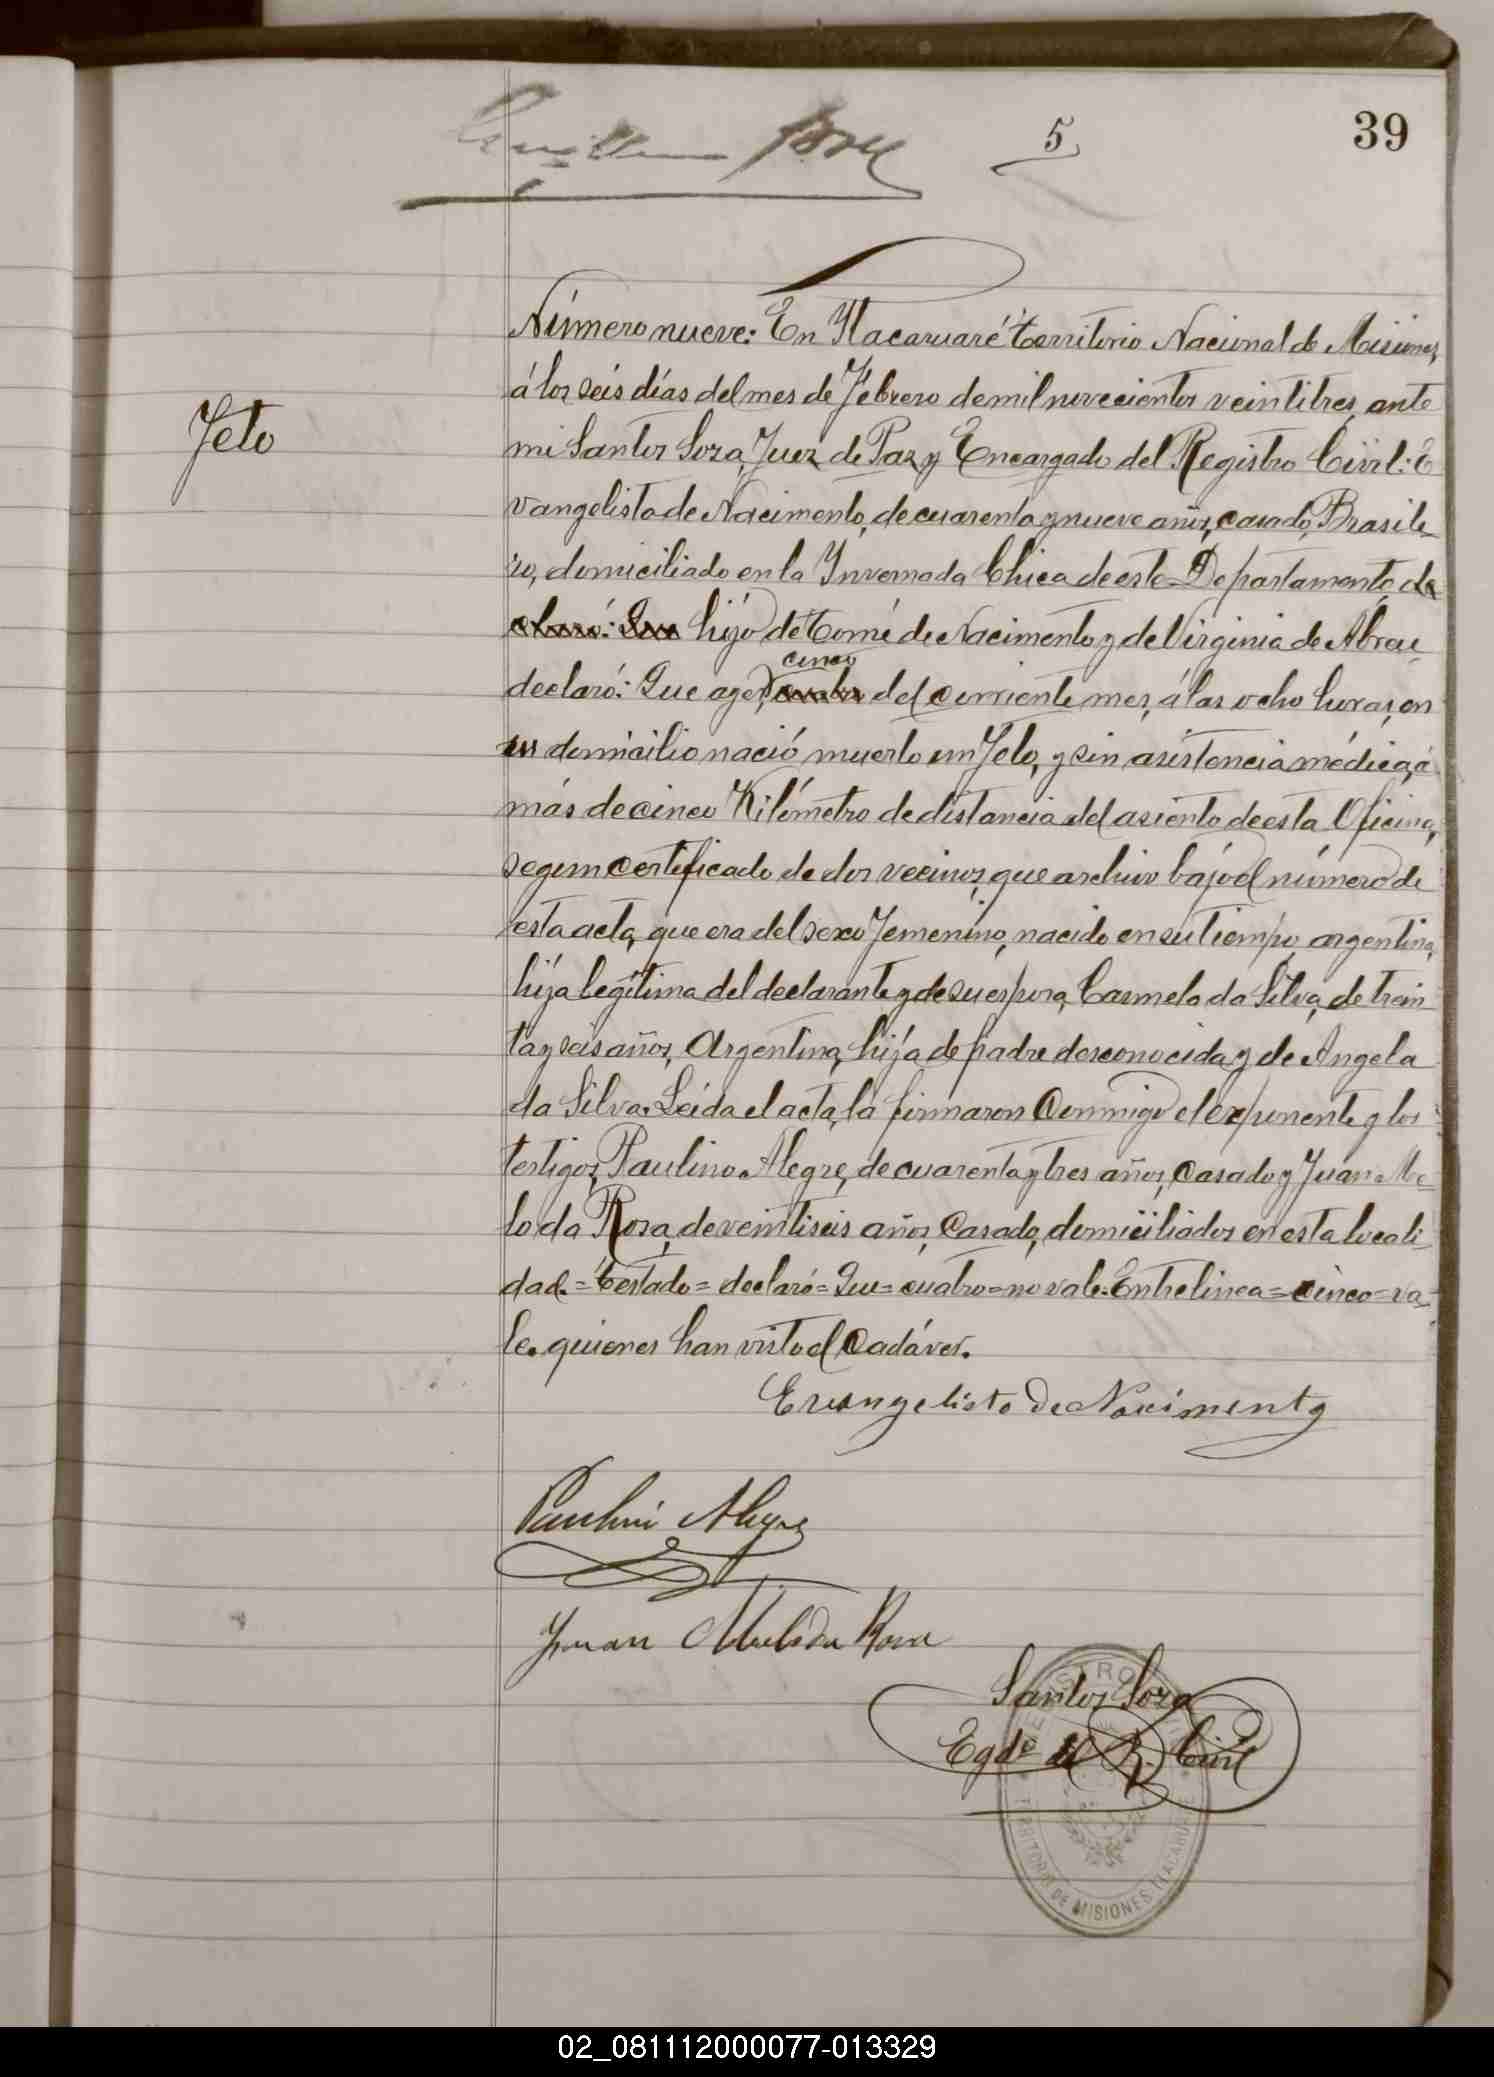 5
39
Número nueve: En Itacaruaré territorio Nacional de Misiones,
á los seis días del mes de Febrero de mil novecientos veintitres, ante
mi Santos Soza, Juez de Paz y Encargado del Registro Civil: E
vangelisto de Nacimento, de cuarenta y nueve años, casado, Brasile
ro, domiciliado en la Invernada Chica de este Departamento, de
claró: Que hijo de Tomé de Nacimento y de Virginia de Abreu,
cinco
declaró: Que ayer, cuatro del corriente mes, á las ocho horas, en
su domicilio nació muerto un Feto, y sin asistencia médica, á
más de cinco Kilómetro de distancia del asiento de esta Oficina,
segun certificado de dos vecinos, que archivo bajo el número de
esta acta, que era del sexo Femenino, nacido en su tiempo, argentina,
hija legítima del declarante y de su esposa, Carmela da Silva, de trein
ta y seis años, Argentina, hija de padre desconocida y de Angela
da Silva. Leida el acta, la firmaron Conmigo el exponente y los
testigos, Paulino Alegre, de cuarenta y tres años, Casado y Juan Me-
lo da Rosa, de veintiseis años, Casado, domiciliados en esta locali-
dad.=Testado=declaró=Que=cuatro=no vale: Entrelinea=cinco=va-
le. quienes han visto el Cadáver.
Feto
Evangelisto de Nacimento
Paulino Alegre
Juan Melo da Rosa
Santos Soza
Egdo del R. Civil
REGISTRO CIVIL
TERRITORIO DE MISIONES ITACARUARE
02_081112000077-013329